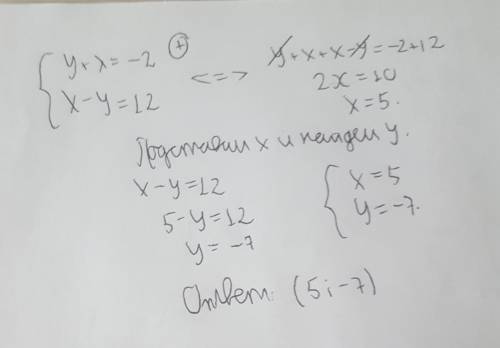 { y+x=-2 (+) <=> y+x+x-y=-2+12
x-y=12 2x=10
x=5.
Подставим x и найдем y.
x-y=12 { x=5
5-y=12 y=-7.
y=-7
Ответ: (5;-7)